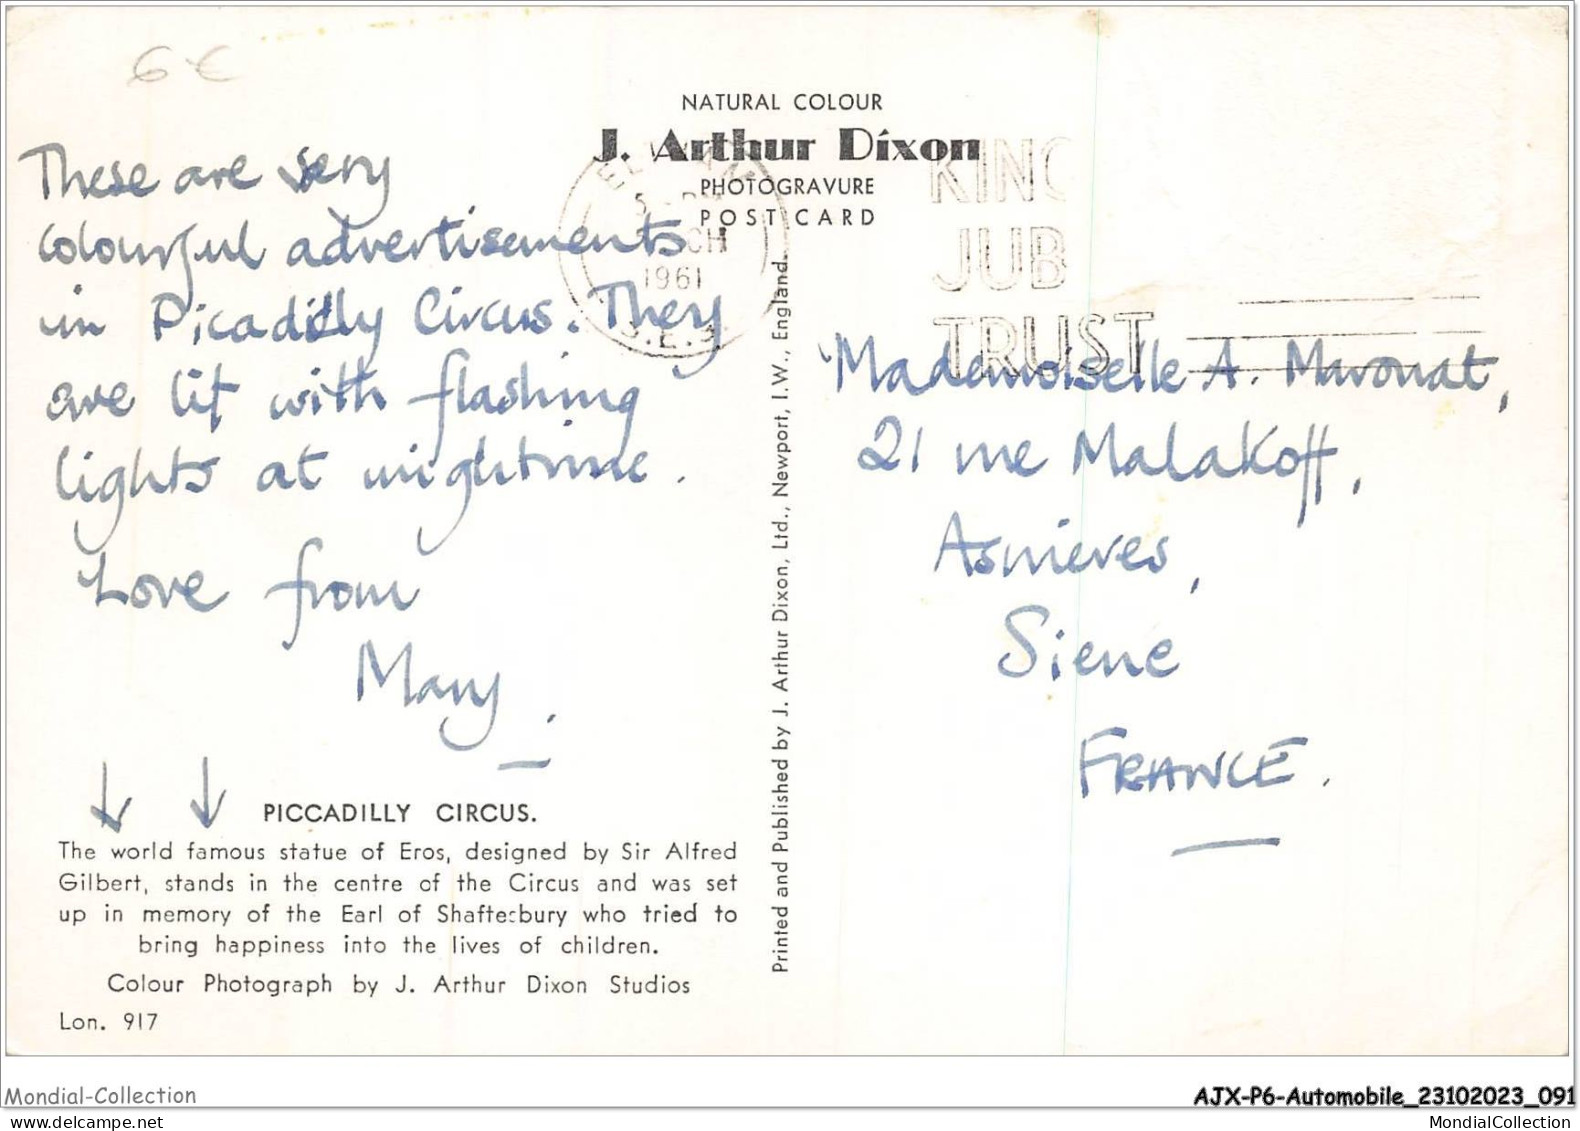 6 €
NATURAL COLOUR
J. Arthur Dixon
PHOTOGRAVURE
POST CARD
1961
S.E.
KING
JUB
TRUST
These are very
colourful advertisements
in Picadilly Circus. They
are lit with flashing
lights at nightime.
Love from
Mary.
Mademoiselle A. Maronat,
21 rue Malakoff,
Asnieres,
Siene
FRANCE.
Printed and Published by J. Arthur Dixon, Ltd., Newport, I.W., England.
PICCADILLY CIRCUS.
The world famous statue of Eros, designed by Sir Alfred
Gilbert, stands in the centre of the Circus and was set
up in memory of the Earl of Shaftesbury who tried to
bring happiness into the lives of children.
Colour Photograph by J. Arthur Dixon Studios
Lon. 917
Mondial-Collection
AJX-P6-Automobile_23102023_091
MondialCollection
MondialCollection